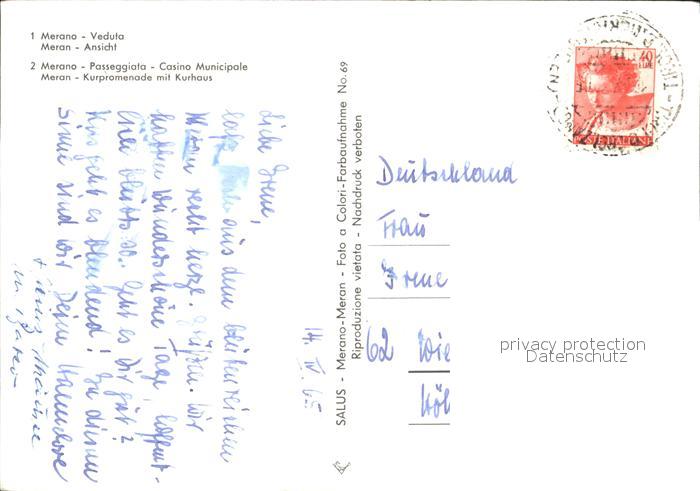 1 Merano - Veduta
Meran - Ansicht
2 Merano - Passeggiata - Casino Municipale
Meran - Kurpromenade mit Kurhaus
Liebe Irene,
laß aus dem blütenreichen
Meran recht herzl. grüßen. Wir
hatten wunderschöne Tage, hoffent-
lich bleibts so. Geht es Dir gut?
Uns geht es blendend! In diesem
Sinne sind wir Deine Hannelore
14. IV. 65
SALUS - Merano-Meran - Foto a Colori-Farbaufnahme No. 69
Riproduzione vietata - Nachdruck verboten
40
LIRE
POSTE ITALIANE
Deutschland
Frau
Irene
62 Wie
Höl
privacy protection
Datenschutz